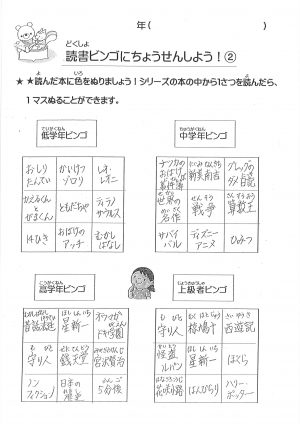 年(　　　　　)
どくしょ
読書ビンゴにちょうせんしよう！②
よ　いろ　よ
★★読んだ本に色をぬりましょう！シリーズの本の中から1さつを読んだら、
1マスぬることができます。
ていがくねん
低学年ビンゴ
おしり
たんてい
かいけつ
ゾロリ
レオ・
レオニ
かえるくん
と
がまくん
ともだちや
ティラノ
サウルス
14ひき
おばけの
アッチ
むかし
ばなし
ちゅうがくねん
中学年ビンゴ
おばけ
事件簿
にいみなんきち
新美南吉
グレッグの
ダメ日記
せかい
世界の
名作
せんそう
戦争
さんすう
算数
サバイ
バル
ディズニー
アニメ
ひみつ
こうがくねん
高学年ビンゴ
昔話法廷
ほししんいち
星新一
もびと
守り人
ぜにてんどう
銭天堂
みやざわけんじ
宮沢賢治
ノン
フィクション
日本の
歴史
ごふんご
5分後
じょうきゅうしゃ
上級者ビンゴ
もびと
守り人
椋鳩十
さいゆうき
西遊記
かいとう
怪盗
ルパン
ほししんいち
星新一
ぼくら
若おかみ
はんぴらり
ハリー・
ポッター